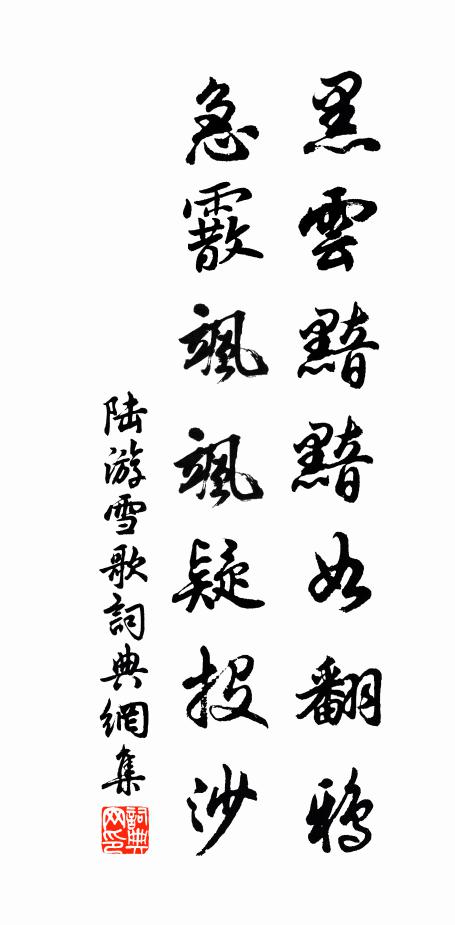 黑雲黯黯如翻鴉
急霰颯颯疑投沙
陆游雪歌詞典網集
詞典网印